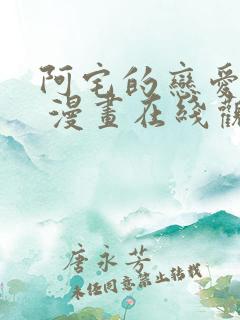 阿宅的戀愛
漫畫在线觀
唐永芳
未经同意禁止转载